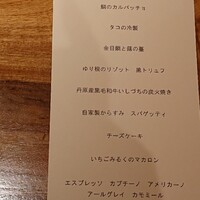 鯖のカルパッチョ
タコの冷製
金目鯛と蕗の薹
ゆり根のリゾット　黒トリュフ
丹原産黒毛和牛いしづちの炭火焼き
自家製からすみ　スパゲッティ
チーズケーキ
いちごみるくのマカロン
エスプレッソ　カプチーノ　アメリカーノ
アールグレイ　カモミール